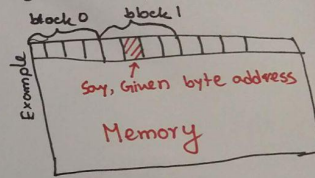 block 0 block 1
Example
Say, Given byte address
Memory